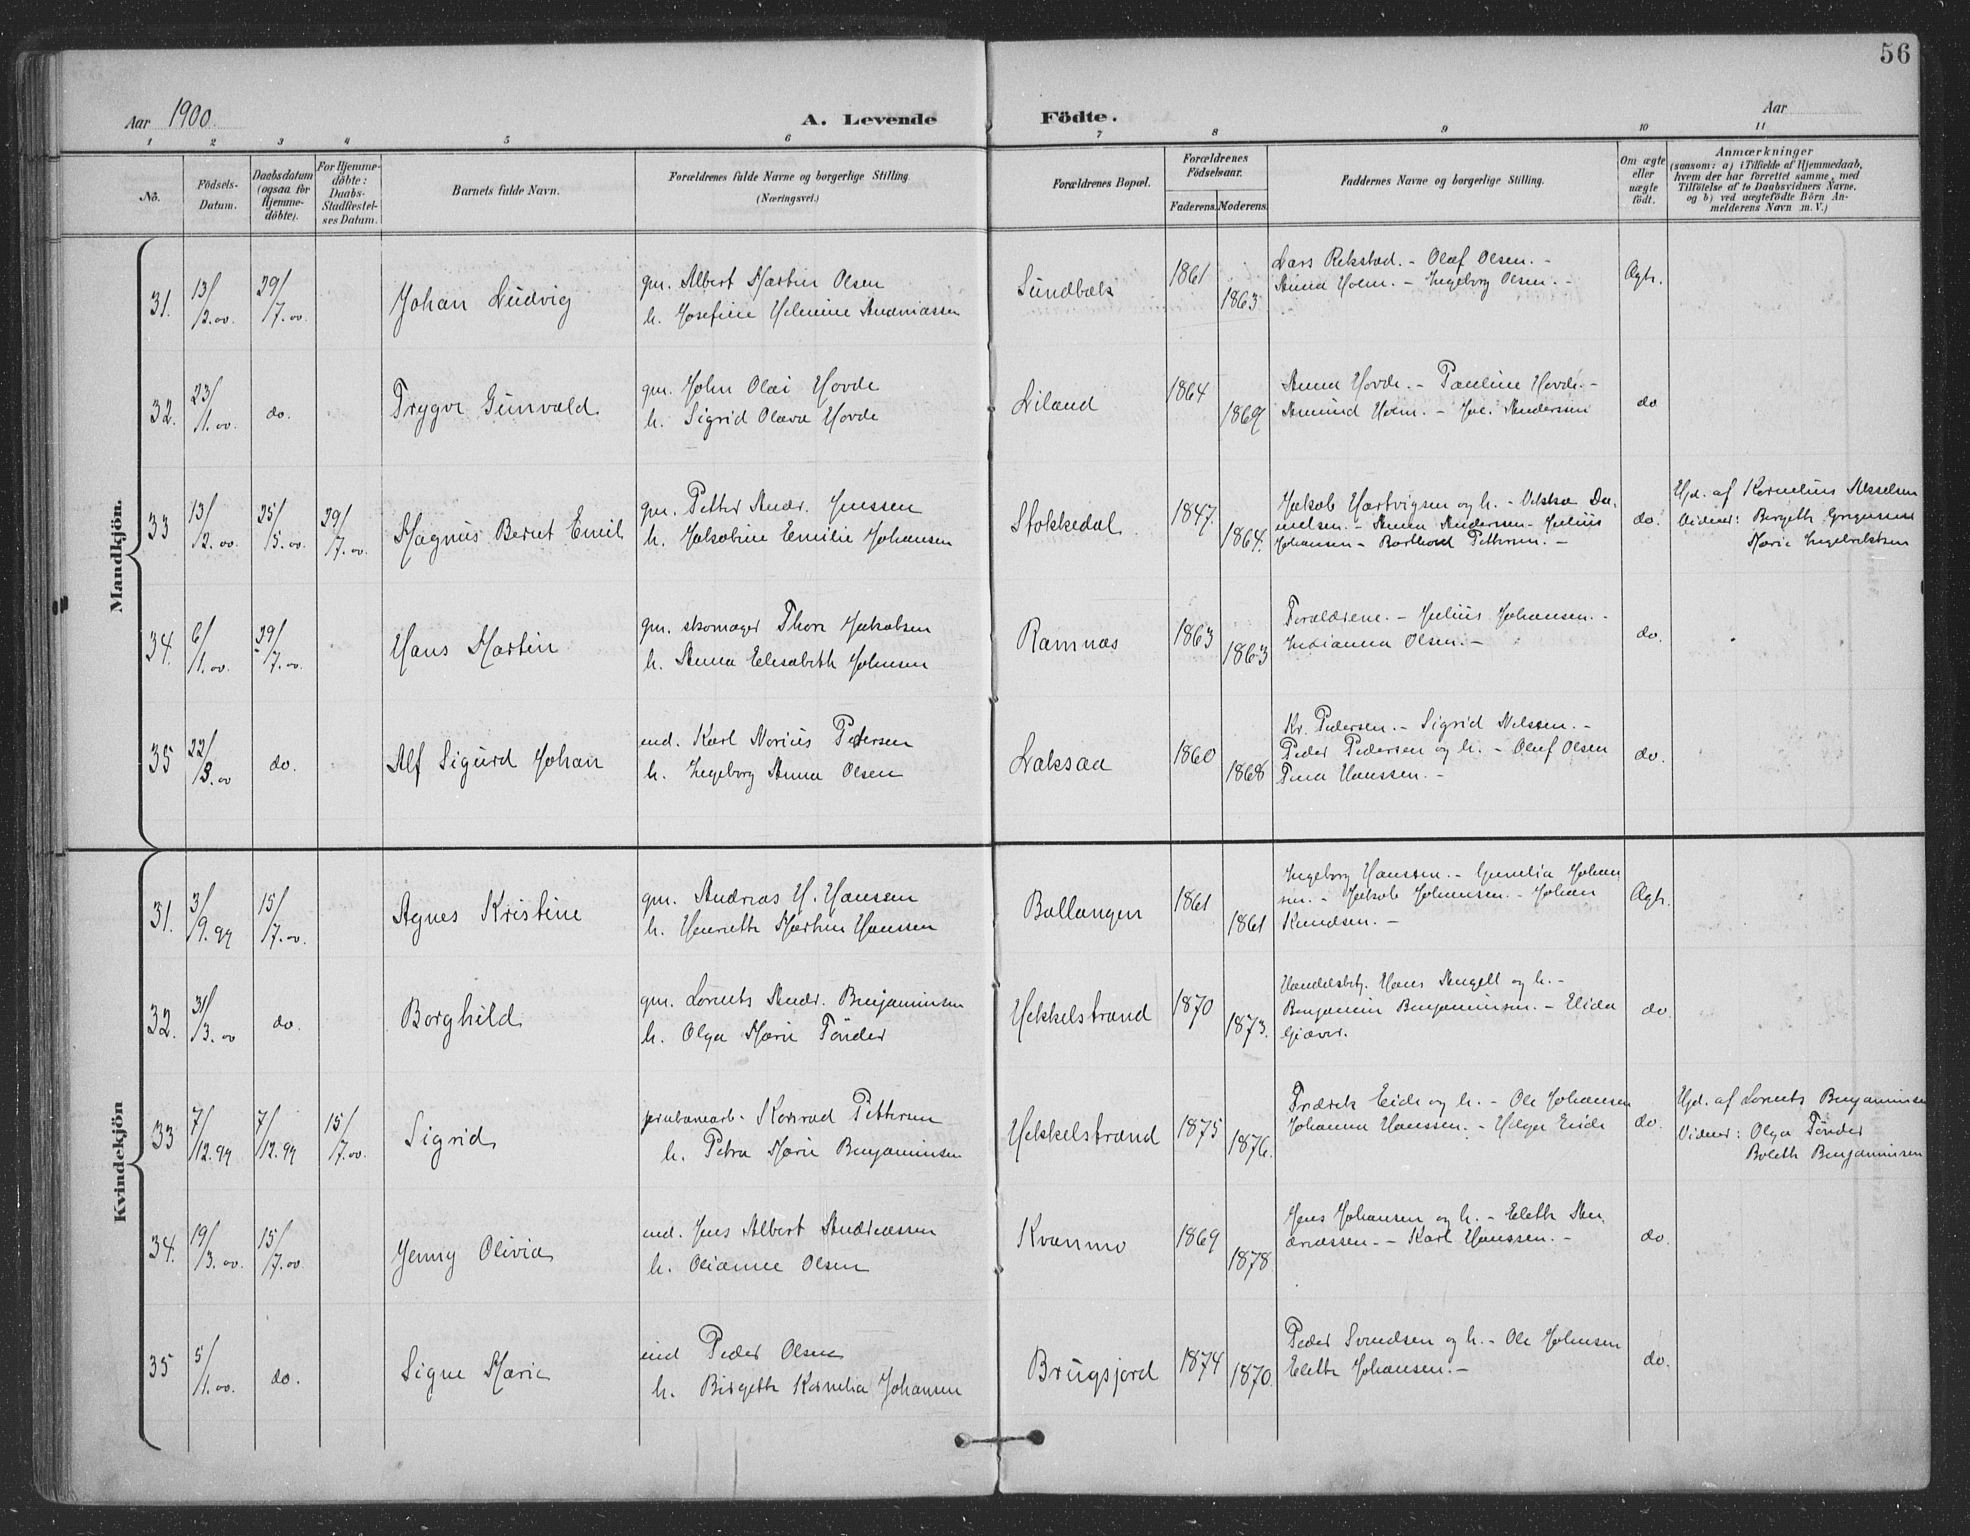 56
Aar 1900.
A. Levende Födte.
Aar
1 2 3 4 5 6 7 8 9 10 11
No.
Födsels-Datum.
Daabsdatum (ogsaa for Hjemme-döbte).
For Hjemme-döbte: Daabs-Stadfæstel-ses Datum.
Barnets fulde Navn.
Forældrenes fulde Navne og borgerlige Stilling (Næringsvei.)
Forældrenes Bopæl.
Forældrenes Födselsaar.
Faderens. Moderens.
Faddernes Navne og borgerlige Stilling.
Om ægte eller uægte födt.
Anmærkninger
(saasom: a) i Tilfælde af Hjemmedaab,
hvem der har forrettet samme, med
Tilföielse af to Daabsvidners Navne,
og b) ved uægtefödte Börn An-
melderens Navn m. V.)
Mandkjön.
31. 13/2.00. 29/7.00 Johan Ludvig
gm. Albert Martin Olsen
h. Josefine Helmine Andreassen
Sundbæk 1861 1863
Lars Rekstad. - Olaf Olsen. -
Anna Holm. - Ingeborg Olsen. -
Ægte.
32. 23/1.00. do. Trygve Gunvald
gm. John Olai Hovde
h. Sigrid Olava Hovde
Liland 1864 1869
Anna Hovde. - Pauline Hovde. -
Amund Holm. - Joh. Andersen
do
33 13/2.00. 25/5.00 29/7.00. Magnus Bernt Emil
gm. Petter Andr. Jenssen
h. Jakobine Emilie Johansen
Stokkedal 1847. 1864.
Jakob Hartvigsen og h. - Da-
nielsen. - Anna Andersen - Julius
Johansen - Pettersen. -
do.
Hjd. af Kornelius Akselsen
Vidner: Bergeth
Marie Ingebriktsen
34. 6/1.00. 29/7.00. Hans Martin
gm. skomager Thore Jakobsen
h. Anna Elisabeth Johnsen
Ramnæs 1863 1863
Forældrene. - Julius Johansen. -
Indianna Olsen. -
do.
35 22/3.00 do. Alf Sigurd Johan
ind. Karl Norius Pedersen
h. Ingeborg Anna Olsen
Laksaa 1860 1868
Kr. Pedersen. - Sigrid Nilssen. -
Peder Pedersen og h. - Oluf Olsen
Tina Hanssen. -
do.
Kvindekjön
31. 3/9.99 15/7.00. Agnes Kristine
gm. Andreas H. Hanssen
h. Henriette Martine Hanssen
Ballangen 1861 1861
Ingeborg Hanssen. - Gunelia Johan-
sen. - Jakob Johansen. - Johan
Knudsen. -
Ægte.
32. 31/3.00 do. Borghild
gm. Lorents Andr. Benjaminsen
h. Olga Marie Tönder
Hekkelstrand 1870 1873.
Handelsbtj. Hans Angell og h. -
Benjamin Benjaminsen. - Elida
Giæver.
do
33 7/12.99 7/12.99 15/7.00. Sigrid
jernbanearb. Konrad Pettersen
h. Petra Marie Benjaminsen
Hekkelstrand 1875 1876.
Fredrik Eide og h. - Ole Johansen
Johanna Hanssen. - Helga Eide
do.
Hjd. af Lorents Benjaminsen
Vidner: Olga Tönder
Boleth Benjaminsen
34. 19/3.00. 15/7.00 Jenny Olivia
ind. Jens Albert Andreassen
h. Olianne Olsen
Kvanmo 1869 1878
Jens Johansen og h. - Eleth An-
dreassen. - Karl Hanssen. -
do.
35 5/1.00. do. Signe Marie
ind Peder Olsen
h. Birgethe Kornelia Johansen
Brugsjord 1874 1870.
Peder Svendsen og h. - Ole Johnsen
Elethe Johansen. -
do.